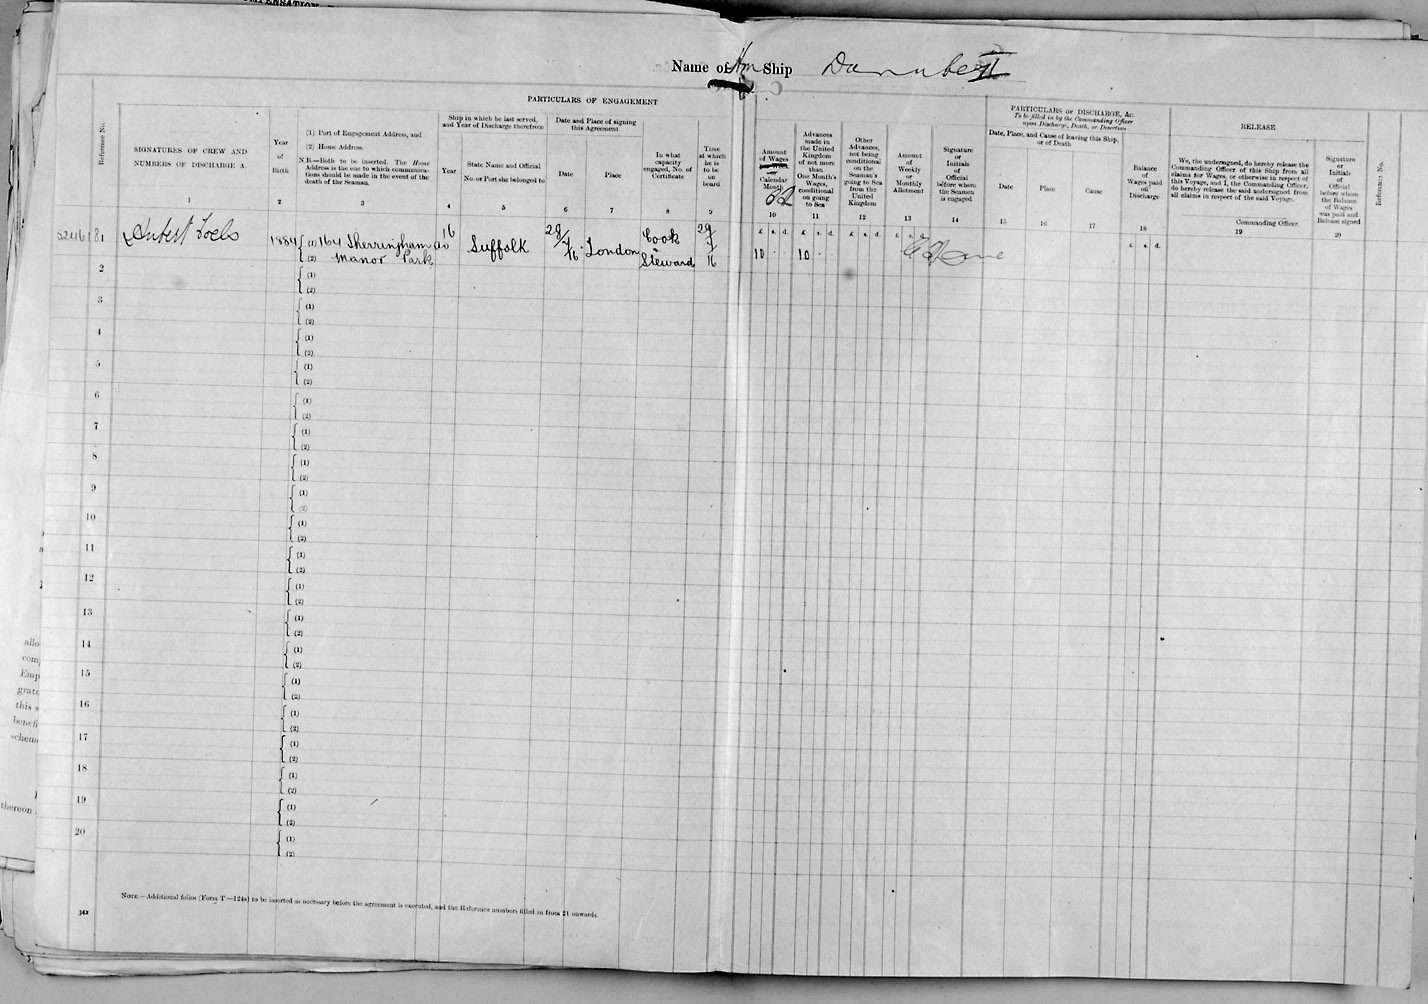 Name of Hm Ship Danube II
PARTICULARS OF ENGAGEMENT
PARTICULARS OF DISCHARGE, &c.
To be filled in by the Commanding Officer
upon Discharge, Death, or Desertion
RELEASE
Reference No.
SIGNATURES OF CREW AND
NUMBERS OF DISCHARGE A.
Year
of
Birth
(1) Port of Engagement Address, and
(2) Home Address.
N.B.—Both to be inserted. The Home
Address is the one to which communica-
tions should be made in the event of the
death of the Seaman.
Ship in which he last served,
and Year of Discharge therefrom
Year
State Name and Official
No. or Port she belonged to
Date and Place of signing
this Agreement
Date
Place
In what
capacity
engaged, No. of
Certificate
Time
at which
he is
to be
on
board
Amount
of Wages
Calendar
Month
Advances
made in
the United
Kingdom
of not more
than
One Month's
Wages,
conditional
on going
to Sea
Other
Advances,
not being
conditional
on the
Seaman's
going to Sea
from the
United
Kingdom
Amount
of
Weekly
or
Monthly
Allotment
Signature
or
Initials
of
Official
before whom
the Seaman
is engaged
Date, Place, and Cause of leaving this Ship,
or of Death
Date
Place
Cause
Balance
of
Wages paid
on
Discharge
We, the undersigned, do hereby release the
Commanding Officer of this Ship from all
claims for Wages, or otherwise in respect of
this Voyage, and I, the Commanding Officer,
do hereby release the said undersigned from
all claims in respect of the said Voyage.
Commanding Officer.
Signature
or
Initials
of
Official
before whom
the Balance
of Wages
was paid and
Release signed
Reference No.
1 2 3 4 5 6 7 8 9 10 11 12 13 14 15 16 17 18 19 20
£ s. d. £ s. d. £ s. d. £ s. d. £ s. d.
1 1884 (1) 164 Sherringham Av 16 Suffolk 28/7/16 London Cook 29/7/16 10 10
(2) Manor Park Steward
2 (1)
(2)
3 (1)
(2)
4 (1)
(2)
5 (1)
(2)
6 (1)
(2)
7 (1)
(2)
8 (1)
(2)
9 (1)
(2)
10 (1)
(2)
11 (1)
(2)
12 (1)
(2)
13 (1)
(2)
14 (1)
(2)
15 (1)
(2)
16 (1)
(2)
17 (1)
(2)
18 (1)
(2)
19 (1)
(2)
20 (1)
(2)
NOTE.—Additional folios (Form T.—124a) to be inserted as necessary before the agreement is executed, and the Reference numbers filled in from 21 onwards.